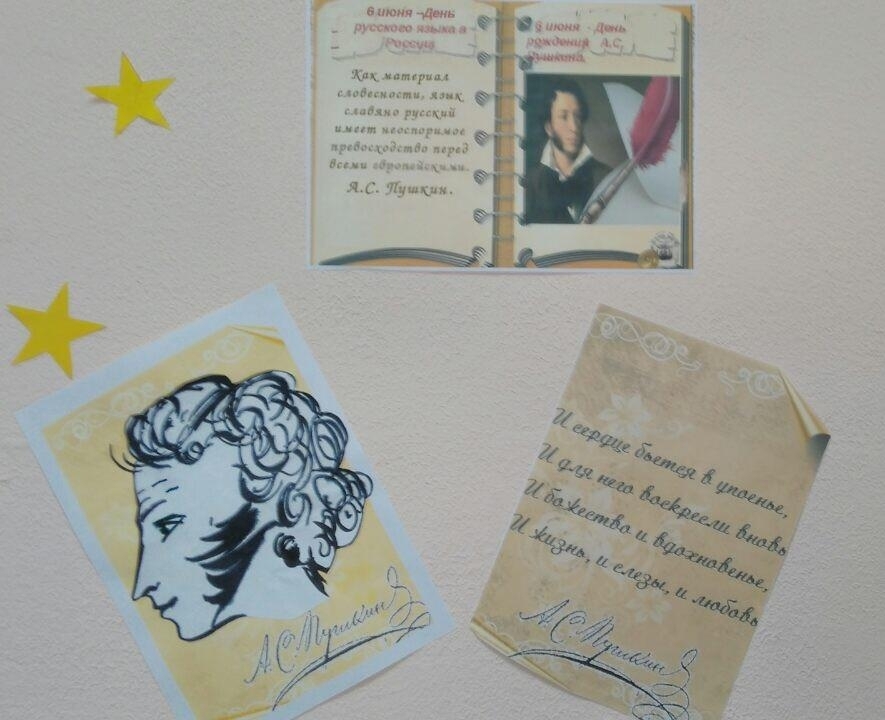 6 июня –День
русского языка в
России
Как материал
словесности, язык
славяно русский
имеет неоспоримое
превосходство перед
всеми европейскими.
А.С. Пушкин.
6 июня - День
рождения А.С.
Пушкина.
А.С.Пушкин
И сердце бьется в упоенье,
И для него воскресли вновь
И божество и вдохновенье,
И жизнь, и слезы, и любовь
А.С.Пушкин